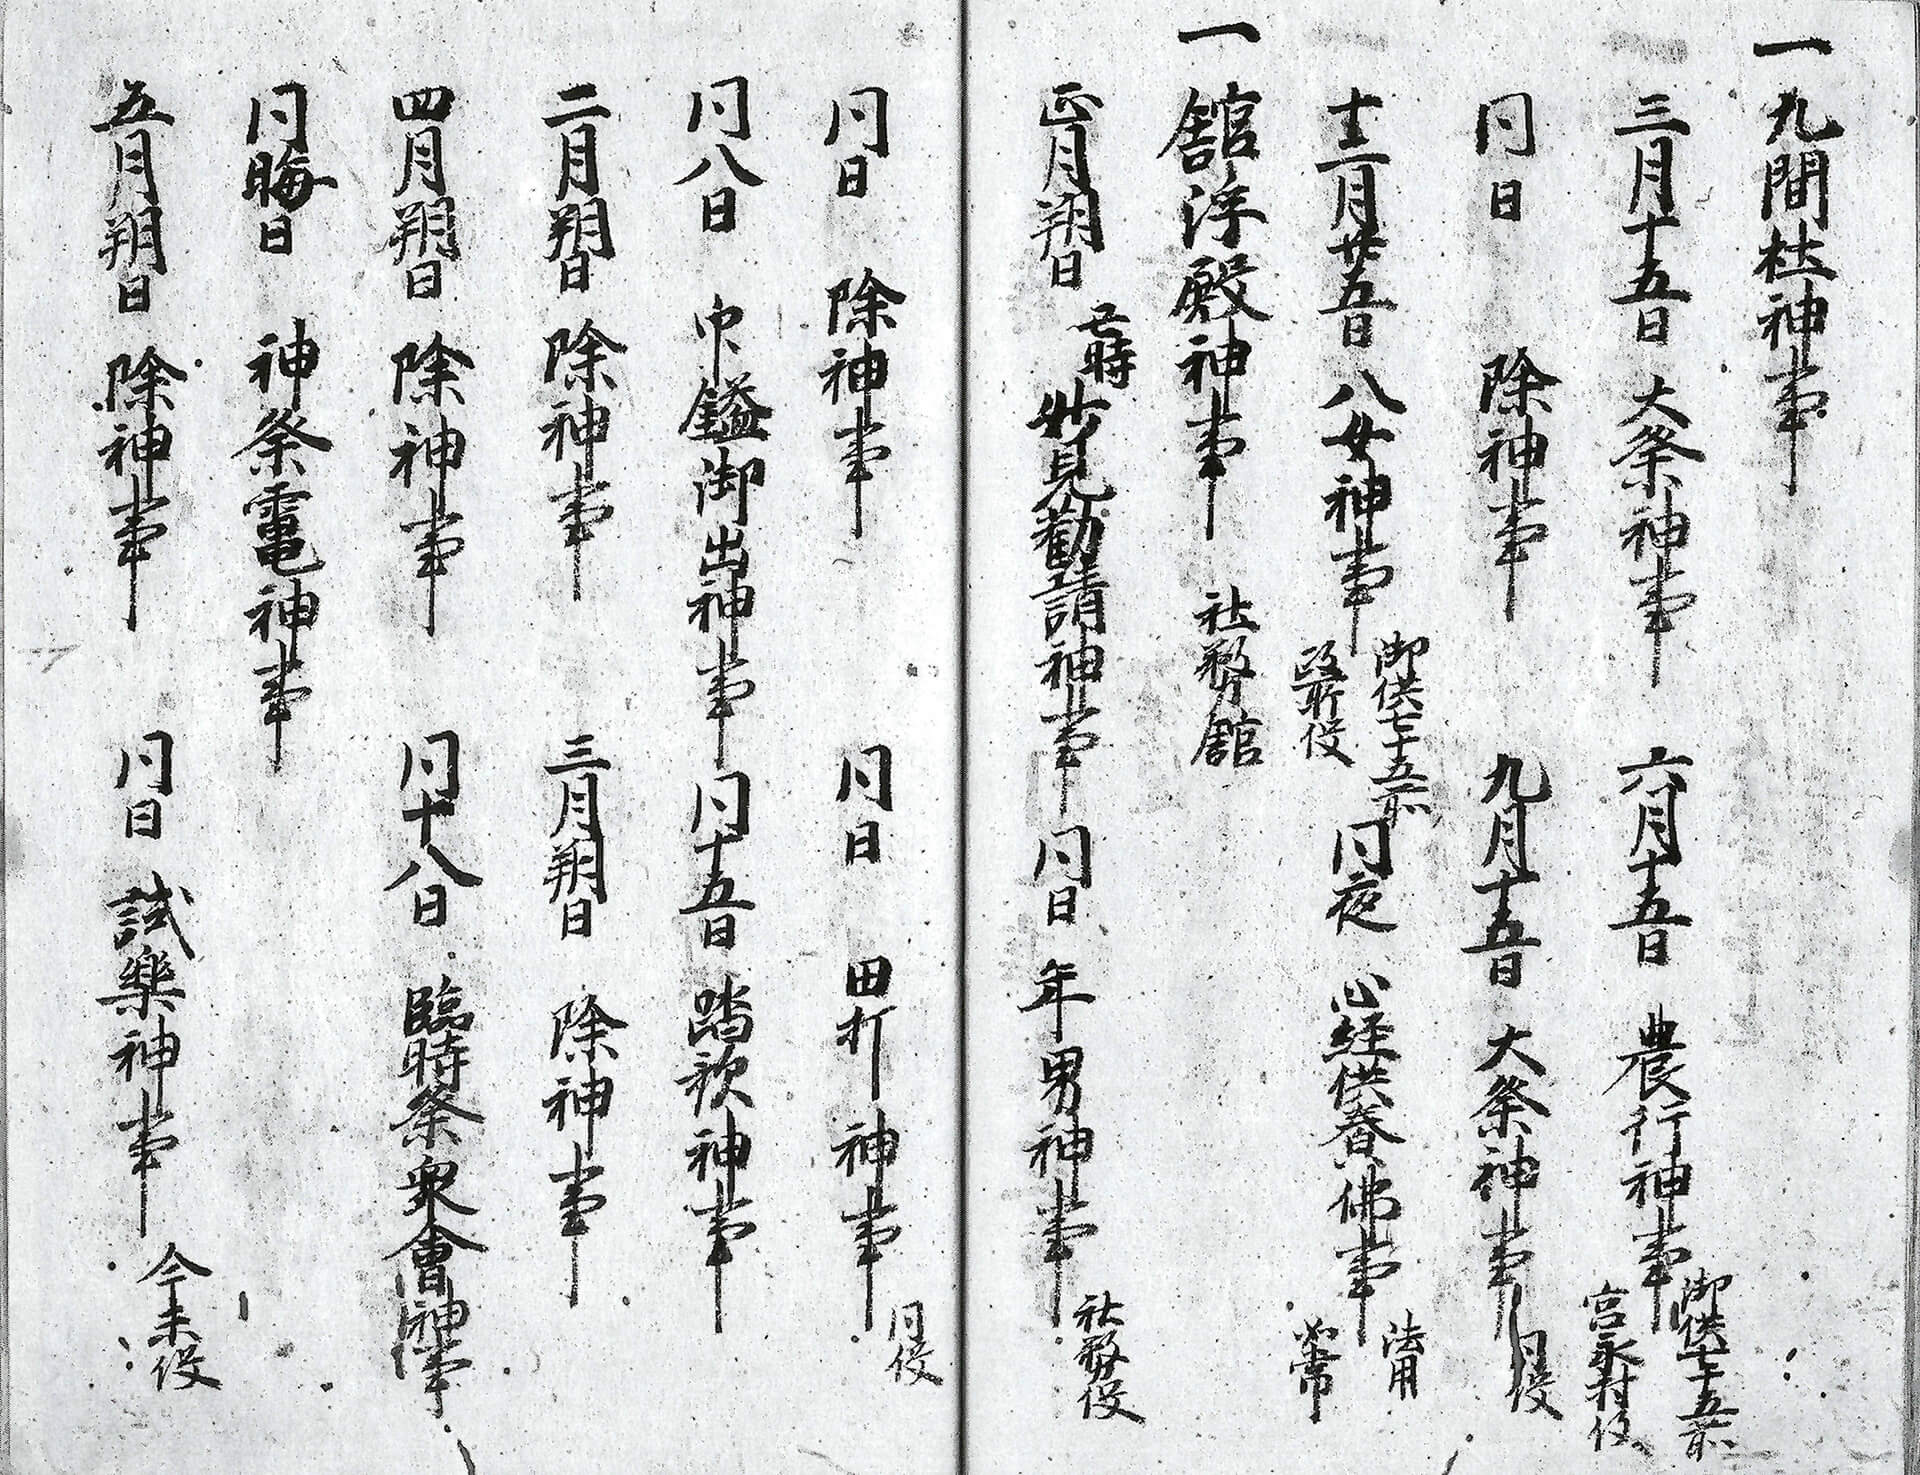 一九間社神事
三月十五日 大祭神事 六月十五日 農行神事 御供七十五前 宮永村役
同日 除神事 九月十五日 大祭神事 同役
十二月廿五日 八女神事 御供七十五前 政所役 同夜 心経供養佛事 法用 如常
一 舘浮殿神事 社務舘
正月朔日 亥時 妙見勸請神事 同日 年男神事 社務役
同日 除神事 同日 田打神事 同役
同八日 巾鎰御出神事 同十五日 踏歌神事
二月朔日 除神事 三月朔日 除神事
四月朔日 除神事 同十八日 臨時祭衆會神事
同晦日 神祭竃神事
五月朔日 除神事 同日 試樂神事 今未役